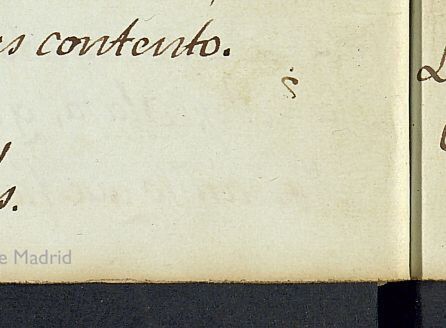 es contento.
s
s.
e Madrid